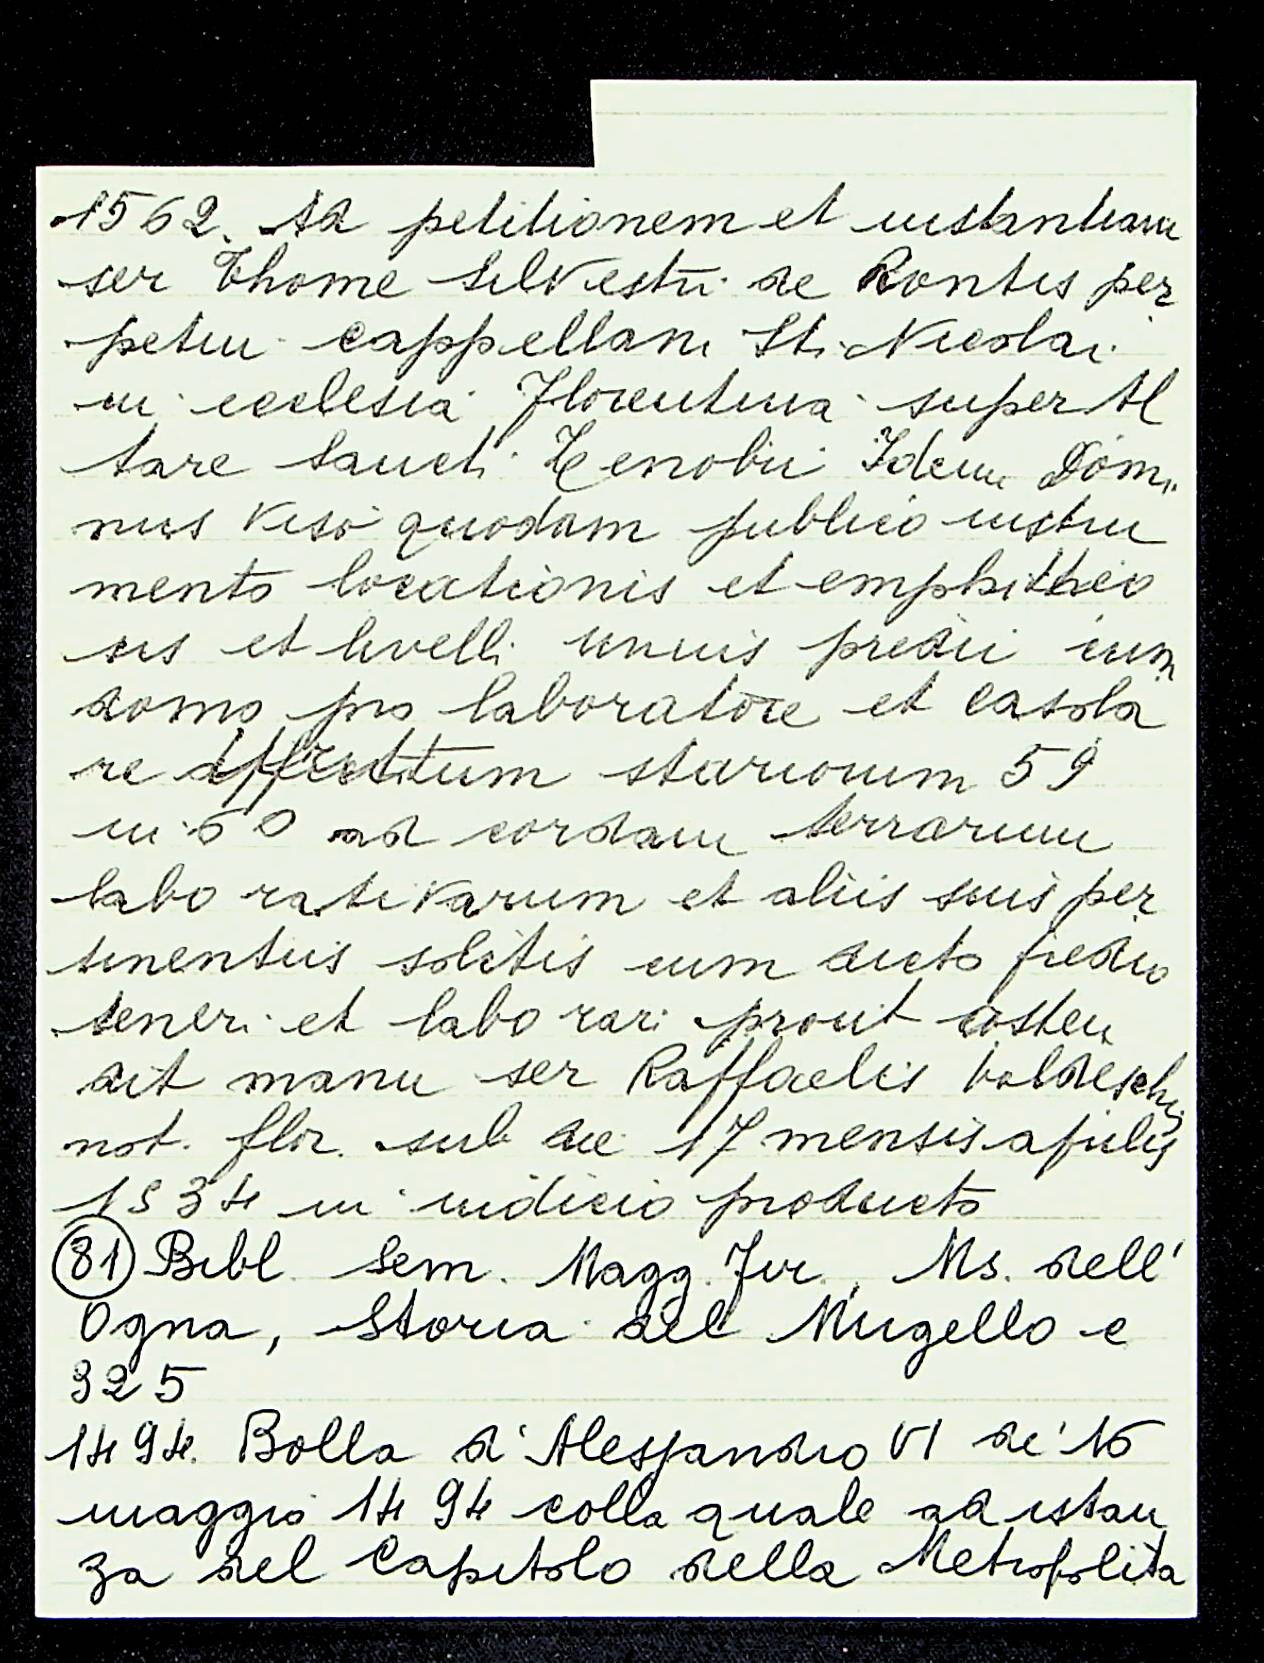 1562. Ad petitionem et instantiam
ser Thome Silvestri de Rontis per
petui cappellani Sti Nicolai
in ecclesia Florentina super Al
tare Sancti Zenobii Idem Domi
nus viso quodam publico instru
mento locationis et emphitheo
sis et livelli unius predii cum
domo pro laboratore et casola
re stariorum 59
in 60 ad cordam terrarum
labo rativarum et aliis suis per
tinentiis solitis cum dicto predio
teneri et labo rari prout osten
dit manu ser Raffaelis Baldeschi
not. flor. sub die 17 mensis aprilis
1534 in iudicio producto
(81) Bibl. Sem. Magg. Fir., Ms. dell'
Ogna, Storia del Mugello c
325
1494. Bolla d'Alessandro VI de' 16
maggio 1494 colla quale ad istan
za del Capitolo della Metropolita